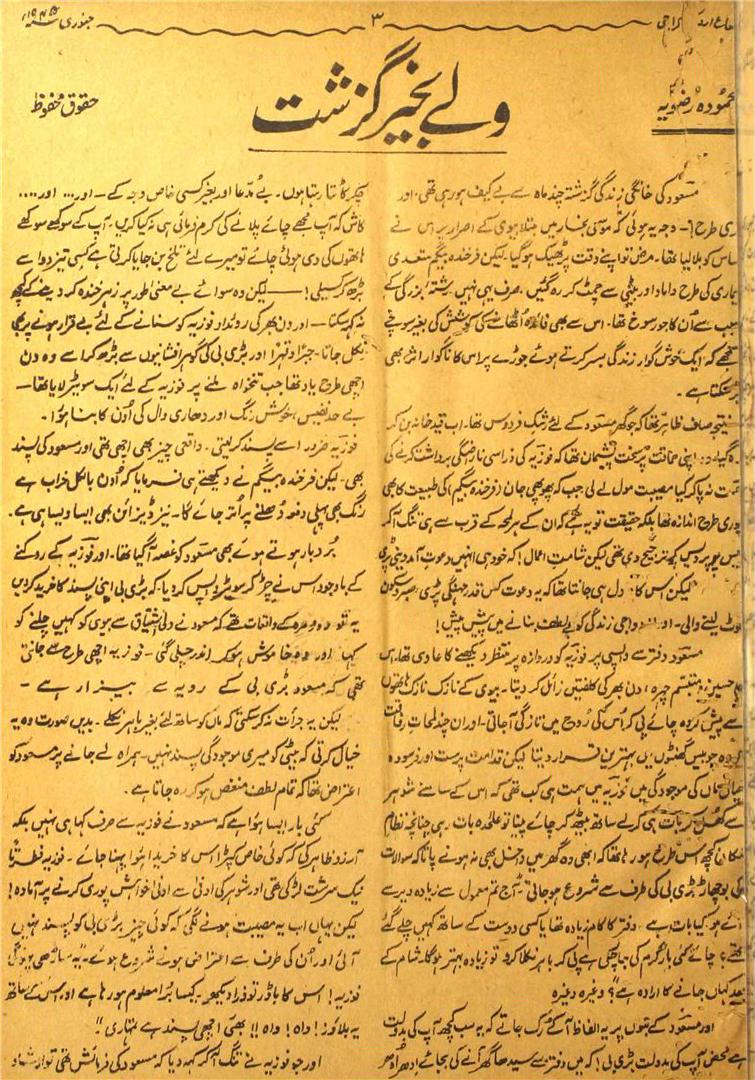 جنوری ۱۹۴۵ء
۳
کراچی
ولے بخیر گزشت
محمودہ رضویہ
حقوق محفوظ
مسعود کی خانگی زندگی گزشتہ چند ماہ سے بے کیف ہو رہی تھی۔ اور
بُری طرح! وجہ یہ ہوئی کہ موسمی بخار میں مبتلا بیوی کے اصرار پر اس نے
ساس کو بلا لیا تھا۔ مرض تو اپنے وقت پر ٹھیک ہو گیا۔ لیکن فرخندہ بیگم متعدی
بیماری کی طرح داماد اور بیٹی سے چمٹ کر رہ گئیں۔ صرف یہی نہیں رشتہ بزرگی کے
سبب سے اُن کا جو رسوخ تھا۔ اس سے بھی فائدہ اُٹھانے کی کوشش کی بغیر سوچے
سمجھے کہ ایک خوش گوار زندگی بسر کرتے ہوئے جوڑے پر اس کا ناگوار اثر بھی
پڑ سکتا ہے۔
نتیجہ صاف ظاہر تھا کہ جو گھر مسعود کے لئے رشک فردوس تھا۔ اب قید خانہ بن کر
رہ گیا۔ وہ اپنی حماقت پر سخت پشیمان تھا کہ فوزیہ کی ذرا سی ناراضگی برداشت کرنے کی
ہمت نہ پا کر کیا مصیبت مول لے لی جب کہ پھوپھی جان (فرخندہ بیگم) کی طبیعت کا بھی
پوری طرح اندازہ تھا بلکہ حقیقت تو یہ ہے کہ ان کے ہر لمحہ کے قرب سے ہی تنگ آ کر
پردیس کو کچھ ترجیح دی تھی لیکن شامتِ اعمال! کہ خود ہی انہیں دعوتِ آمد دینی پڑی
لیکن اس کا دل ہی جانتا تھا کہ یہ دعوت کس قدر مہنگی پڑی، صبر و سکون
لوٹ لینے والی۔ اور ازدواجی زندگی کو بے لطف بنانے میں پیش پیش!
مسعود دفتر سے واپسی پر فوزیہ کو دروازہ پر منتظر دیکھنے کا عادی تھا۔ اس
کا حسین و متبسم چہرہ دن بھر کی کلفتیں زائل کر دیتا۔ بیوی کے نازک نازک ہاتھوں
سے پیش کردہ چائے پی کر اُس کی رُوح میں تازگی آ جاتی۔ اور ان چند لمحاتِ رفاقت
کو وہ چوبیس گھنٹوں میں بہترین قرار دیتا لیکن قدامت پرست اور فرسودہ
خیال ماں کی موجودگی میں فوزیہ میں ہمت ہی کب تھی کہ اس کے سامنے شوہر
سے کھل کر بات ہی کر لے ساتھ بیٹھ کر چائے پینا تو علیحدہ بات رہی چنانچہ نظام
مکان کچھ اس طرح ہو رہا تھا کہ ابھی وہ گھر میں داخل بھی نہ ہونے پاتا کہ سوالات
کی بوچھاڑ بڑی بی کی طرف سے شروع ہو جاتی۔ آج تم معمول سے زیادہ دیر سے
آئے ہو کیا بات ہے۔ دفتر کا کام زیادہ تھا یا کسی دوست کے ساتھ کہیں چلے گئے
تھے؟ چائے کئی بار گرم کی جا چکی ہے پی کر باہر نکلا کرو تو زیادہ بہتر ہو گا۔ شام کے
بعد کہاں جانے کا ارادہ ہے؟ وغیرہ وغیرہ
اور مسعود کے ہونٹوں پر یہ الفاظ آ کے رک جاتے کہ یہ سب کچھ آپ کی بدولت
ہے محض آپ کی بدولت بڑی بی! کہ میں دفتر سے سیدھا گھر آنے کی بجائے ادھر اُدھر
چکر کاٹتا رہتا ہوں۔ بے مُدعا اور بغیر کسی خاص وجہ کے۔ اور... اور....
کاش کہ آپ مجھے چائے پلانے کی کرم فرمائی ہی نہ کیا کریں۔ آپ کے سوکھے سوکھے
ہاتھوں کی دی ہوئی چائے تو میرے لئے تلخ بن جایا کرتی ہے کسی تیز دوا سے
بڑھ کر کسیلی! — لیکن وہ سوائے بے معنی طور پر زہر خندہ کر دینے کے کچھ
نہ کہہ سکتا — اور دن بھر کی روئداد فوزیہ کو سنانے کے لئے بے قرار ہونے پر بھی
نکل جاتا۔ جبراً و قہراً اور بڑی بی کی گوہر افشانیوں سے بڑھ کر اسے وہ دن
اچھی طرح یاد تھا جب تنخواہ ملنے پر فوزیہ کے لئے ایک سویٹر لایا تھا۔
بے حد نفیس، خوش رنگ اور دھاری وال کی اُون کا بنا ہوا۔
فوزیہ ضرور اسے پسند کر لیتی۔ واقعی چیز بھی اچھی تھی اور مسعود کی پسند
بھی۔ لیکن فرخندہ بیگم نے دیکھتے ہی فرمایا کہ اُون بالکل خراب ہے
رنگ بھی پہلی دفعہ دھلنے پر اُتر جائے گا۔ نیز ڈیزائن بھی ایسا ویسا ہی ہے۔
بُردبار ہوتے ہوئے بھی مسعود کو غصہ آ گیا تھا۔ اور فوزیہ کے روکنے
کے باوجود اس نے چڑ کر سویٹر واپس کر دیا۔ کہ بڑی بی اپنی پسند کا خرید کر دیں
یہ تو روزمرہ کے واقعات تھے کہ مسعود نے دلی اشتیاق سے بیوی کو کہیں چلنے کو
کہا اور وہ خاموش ہو کر اندر چلی گئی۔ فوزیہ اچھی طرح سے جانتی
تھی کہ مسعود بڑی بی کے رویہ سے بیزار ہے۔
لیکن یہ جرأت نہ کر سکتی کہ ماں کو ساتھ لئے بغیر باہر نکلے۔ بدیں صورت وہ یہ
خیال کرتی کہ بیٹی کو میری موجودگی پسند نہیں۔ ہمراہ لے جانے پر مسعود کو
اعتراض تھا کہ تمام لطف منغض ہو کر رہ جاتا ہے۔
کئی بار ایسا ہوا ہے کہ مسعود نے فوزیہ سے صرف کہا ہی نہیں بلکہ
آرزو ظاہر کی کہ کوئی خاص کپڑا اس کا خریدا ہوا پہنا جائے۔ فوزیہ فطرتاً
نیک سرشت لڑکی تھی اور شوہر کی ادنیٰ سے ادنیٰ خواہش پوری کرنے پر آمادہ!
لیکن یہاں اب یہ مصیبت ہونے لگی کہ کوئی چیز بڑی بی کو پسند نہیں
آئی اور اُن کی طرف سے اعتراض ہونے شروع ہوئے۔ "یہ ساڑھی
فوزیہ! اس کا بارڈر تو ذرا دیکھو۔ کیسا بُرا معلوم ہو رہا ہے اور اس کے ساتھ
یہ بلاؤز! واہ! واہ!! بھئی اچھی پسند ہے تمہاری!"
اور جو فوزیہ نے تنگ آ کر کہہ دیا کہ مسعود کی فرمائش تھی تو ارشاد